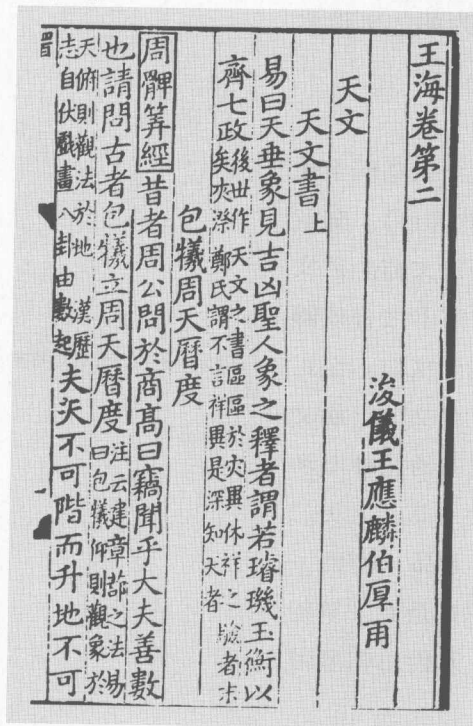 王海卷第二
浚儀王應麟伯厚甫
天文
天文書上
易曰天垂象見吉凶聖人象之釋者謂若璿璣玉衡以
齊七政
後世作天文之書區區於灾異休祥之驗者末
矣夾漈鄭氏謂不言祥異是深知天者
包犧周天曆度
周髀筭經昔者周公問於商高曰竊聞乎大夫善數
也請問古者包犧立周天曆度
注云建章蔀之法易
曰包犧仰則觀象於
天俯則觀法於地 漢歷
志自伏戲畫八卦由數起
夫天不可階而升地不可